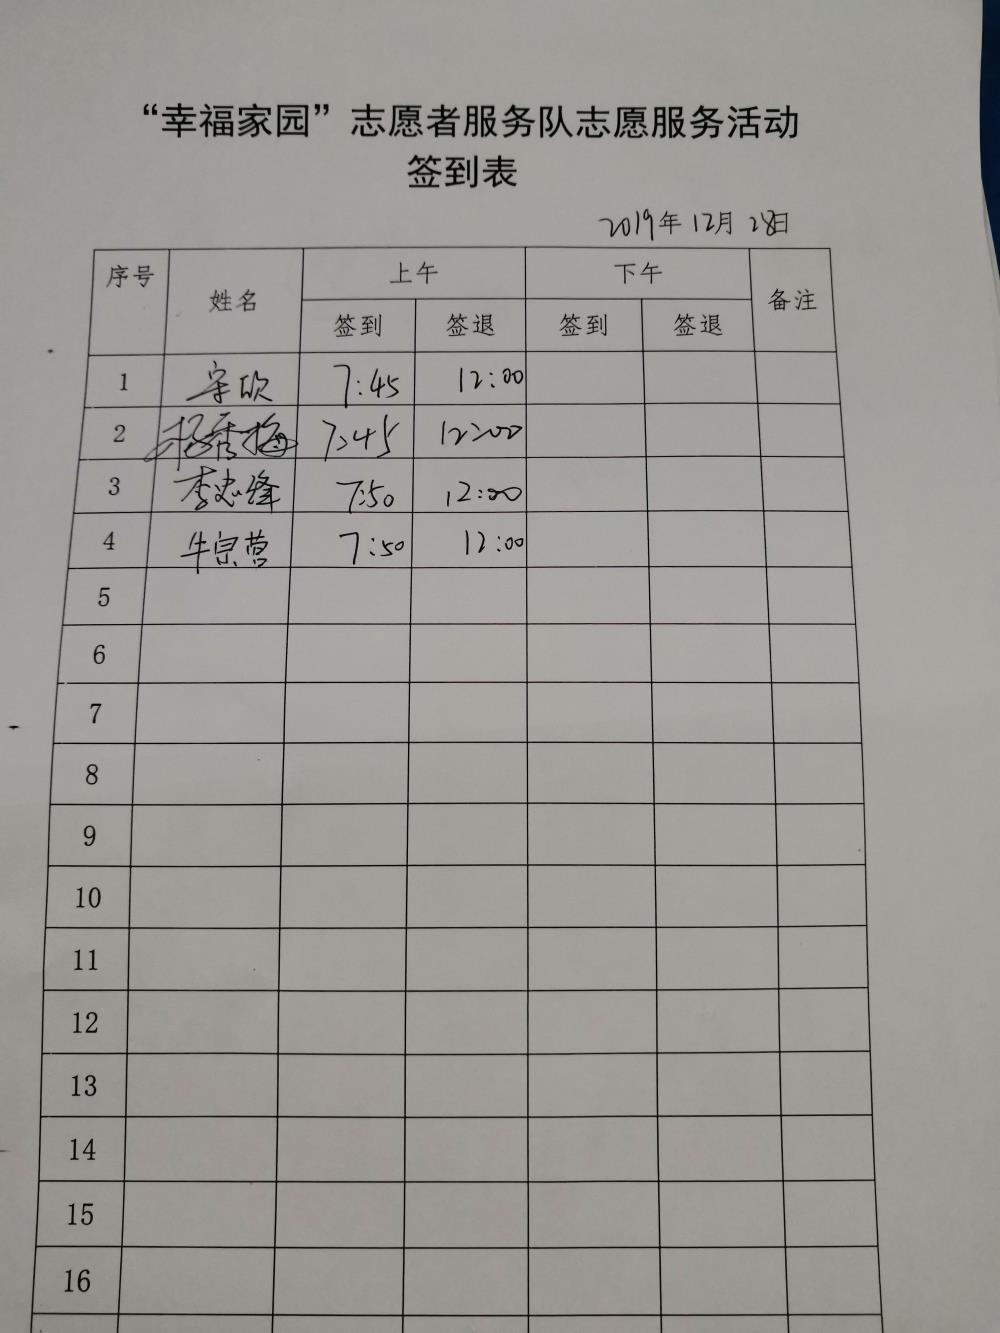 “幸福家园”志愿者服务队志愿服务活动
签到表
2019年12月28日
序号 姓名 上午 下午 备注
签到 签退 签到 签退
1 宋欣 7:45 12:00
2 杨秀梅 7:45 12:00
3 李忠锋 7:50 12:00
4 牛宗营 7:50 12:00
5
6
7
8
9
10
11
12
13
14
15
16